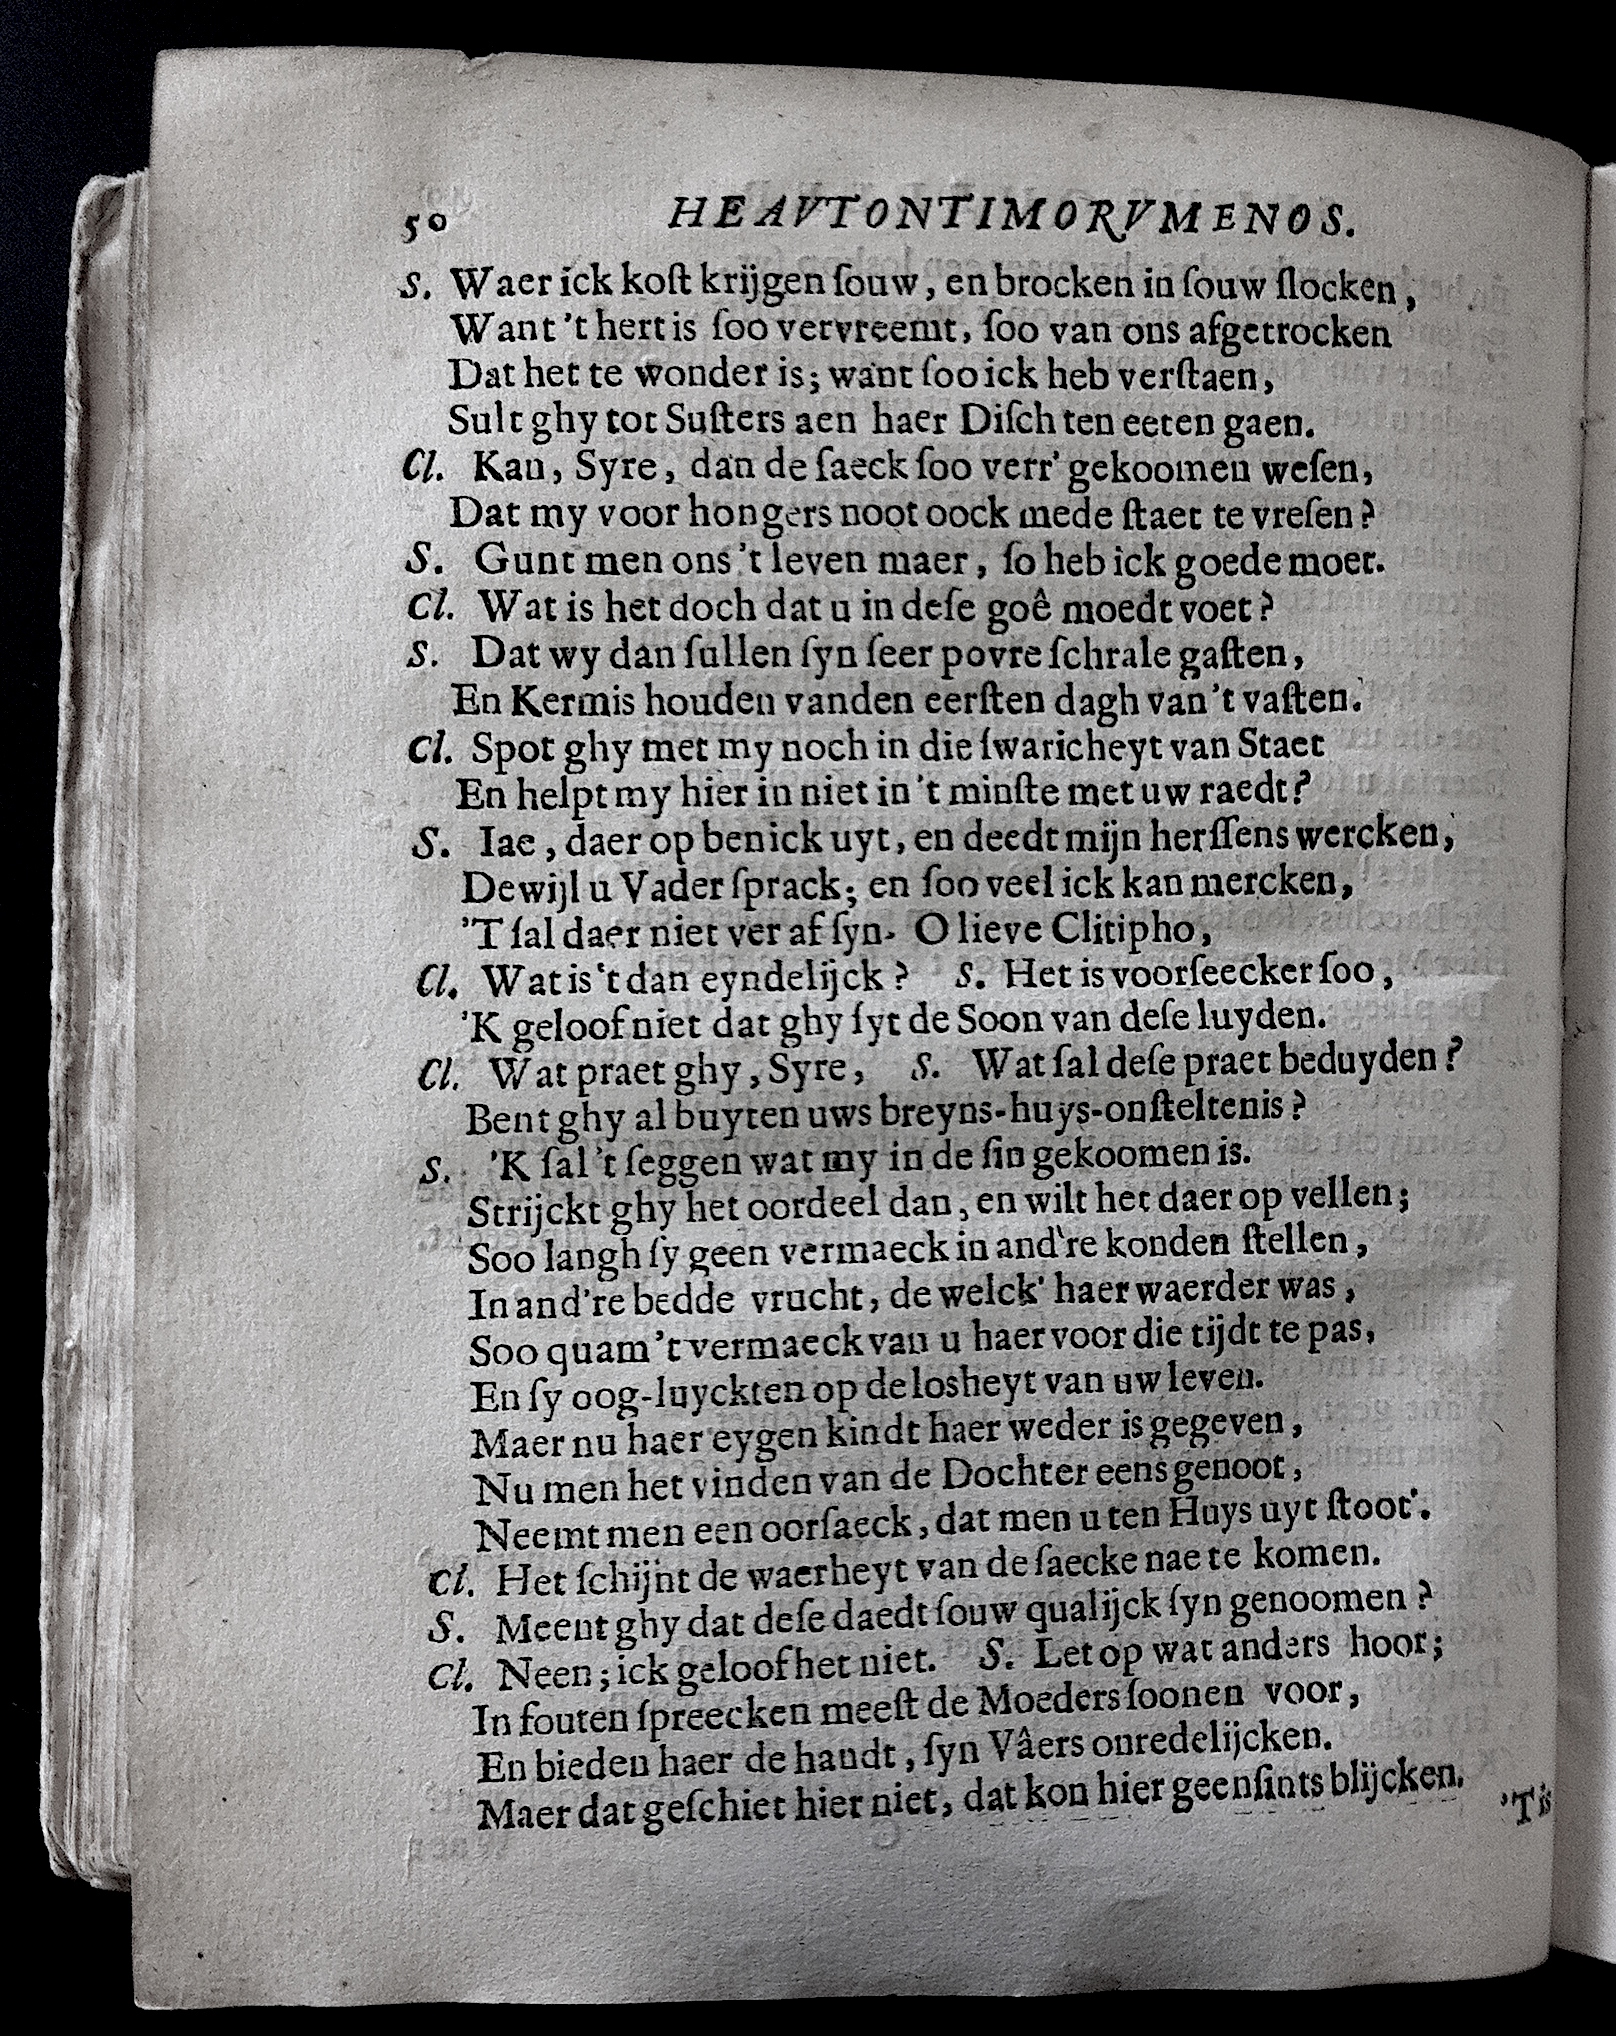 50 HEAVTONTIMORVMENOS.
S. Waer ick koſt krijgen ſouw, en brocken in ſouw ſlocken,
Want 't hert is ſoo vervreemt, ſoo van ons afgetrocken
Dat het te wonder is; want ſoo ick heb verſtaen,
Sult ghy tot Suſters aen haer Diſch ten eeten gaen.
Cl. Kan, Syre, dan de ſaeck ſoo verr' gekoomen weſen,
Dat my voor hongers noot oock mede ſtaet te vreſen?
S. Gunt men ons 't leven maer, ſo heb ick goede moet.
Cl. Wat is het doch dat u in deſe goê moedt voet?
S. Dat wy dan ſullen ſyn ſeer povre ſchrale gaſten,
En Kermis houden vanden eerſten dagh van 't vaſten.
Cl. Spot ghy met my noch in die ſwaricheyt van Staet
En helpt my hier in niet in 't minſte met uw raedt?
S. Iae, daer op ben ick uyt, en deedt mijn herſſens wercken,
Dewijl u Vader ſprack; en ſoo veel ick kan mercken,
'T ſal daer niet ver af ſyn. O lieve Clitipho,
Cl. Wat is 't dan eyndelijck? S. Het is voorſeecker ſoo,
'K geloof niet dat ghy ſyt de Soon van deſe luyden.
Cl. Wat praet ghy, Syre, S. Wat ſal deſe praet beduyden?
Bent ghy al buyten uws breyns-huys-onſteltenis?
S. 'K ſal 't ſeggen wat my in de ſin gekoomen is.
Strijckt ghy het oordeel dan, en wilt het daer op vellen;
Soo langh ſy geen vermaeck in and're konden ſtellen,
In and're bedde vrucht, de welck' haer waerder was,
Soo quam 't vermaeck van u haer voor die tijdt te pas,
En ſy oog-luyckten op de losheyt van uw leven.
Maer nu haer eygen kindt haer weder is gegeven,
Nu men het vinden van de Dochter eens genoot,
Neemt men een oorſaeck, dat men u ten Huys uyt ſtoot'.
Cl. Het ſchijnt de waerheyt van de ſaecke nae te komen.
S. Meent ghy dat deſe daedt ſouw qualijck ſyn genoomen?
Cl. Neen; ick geloof het niet. S. Let op wat anders hoor;
In fouten ſpreecken meeſt de Moeders ſoonen voor,
En bieden haer de handt, ſyn Vâers onredelijcken.
Maer dat geſchiet hier niet, dat kon hier geenſints blijcken.
'T is